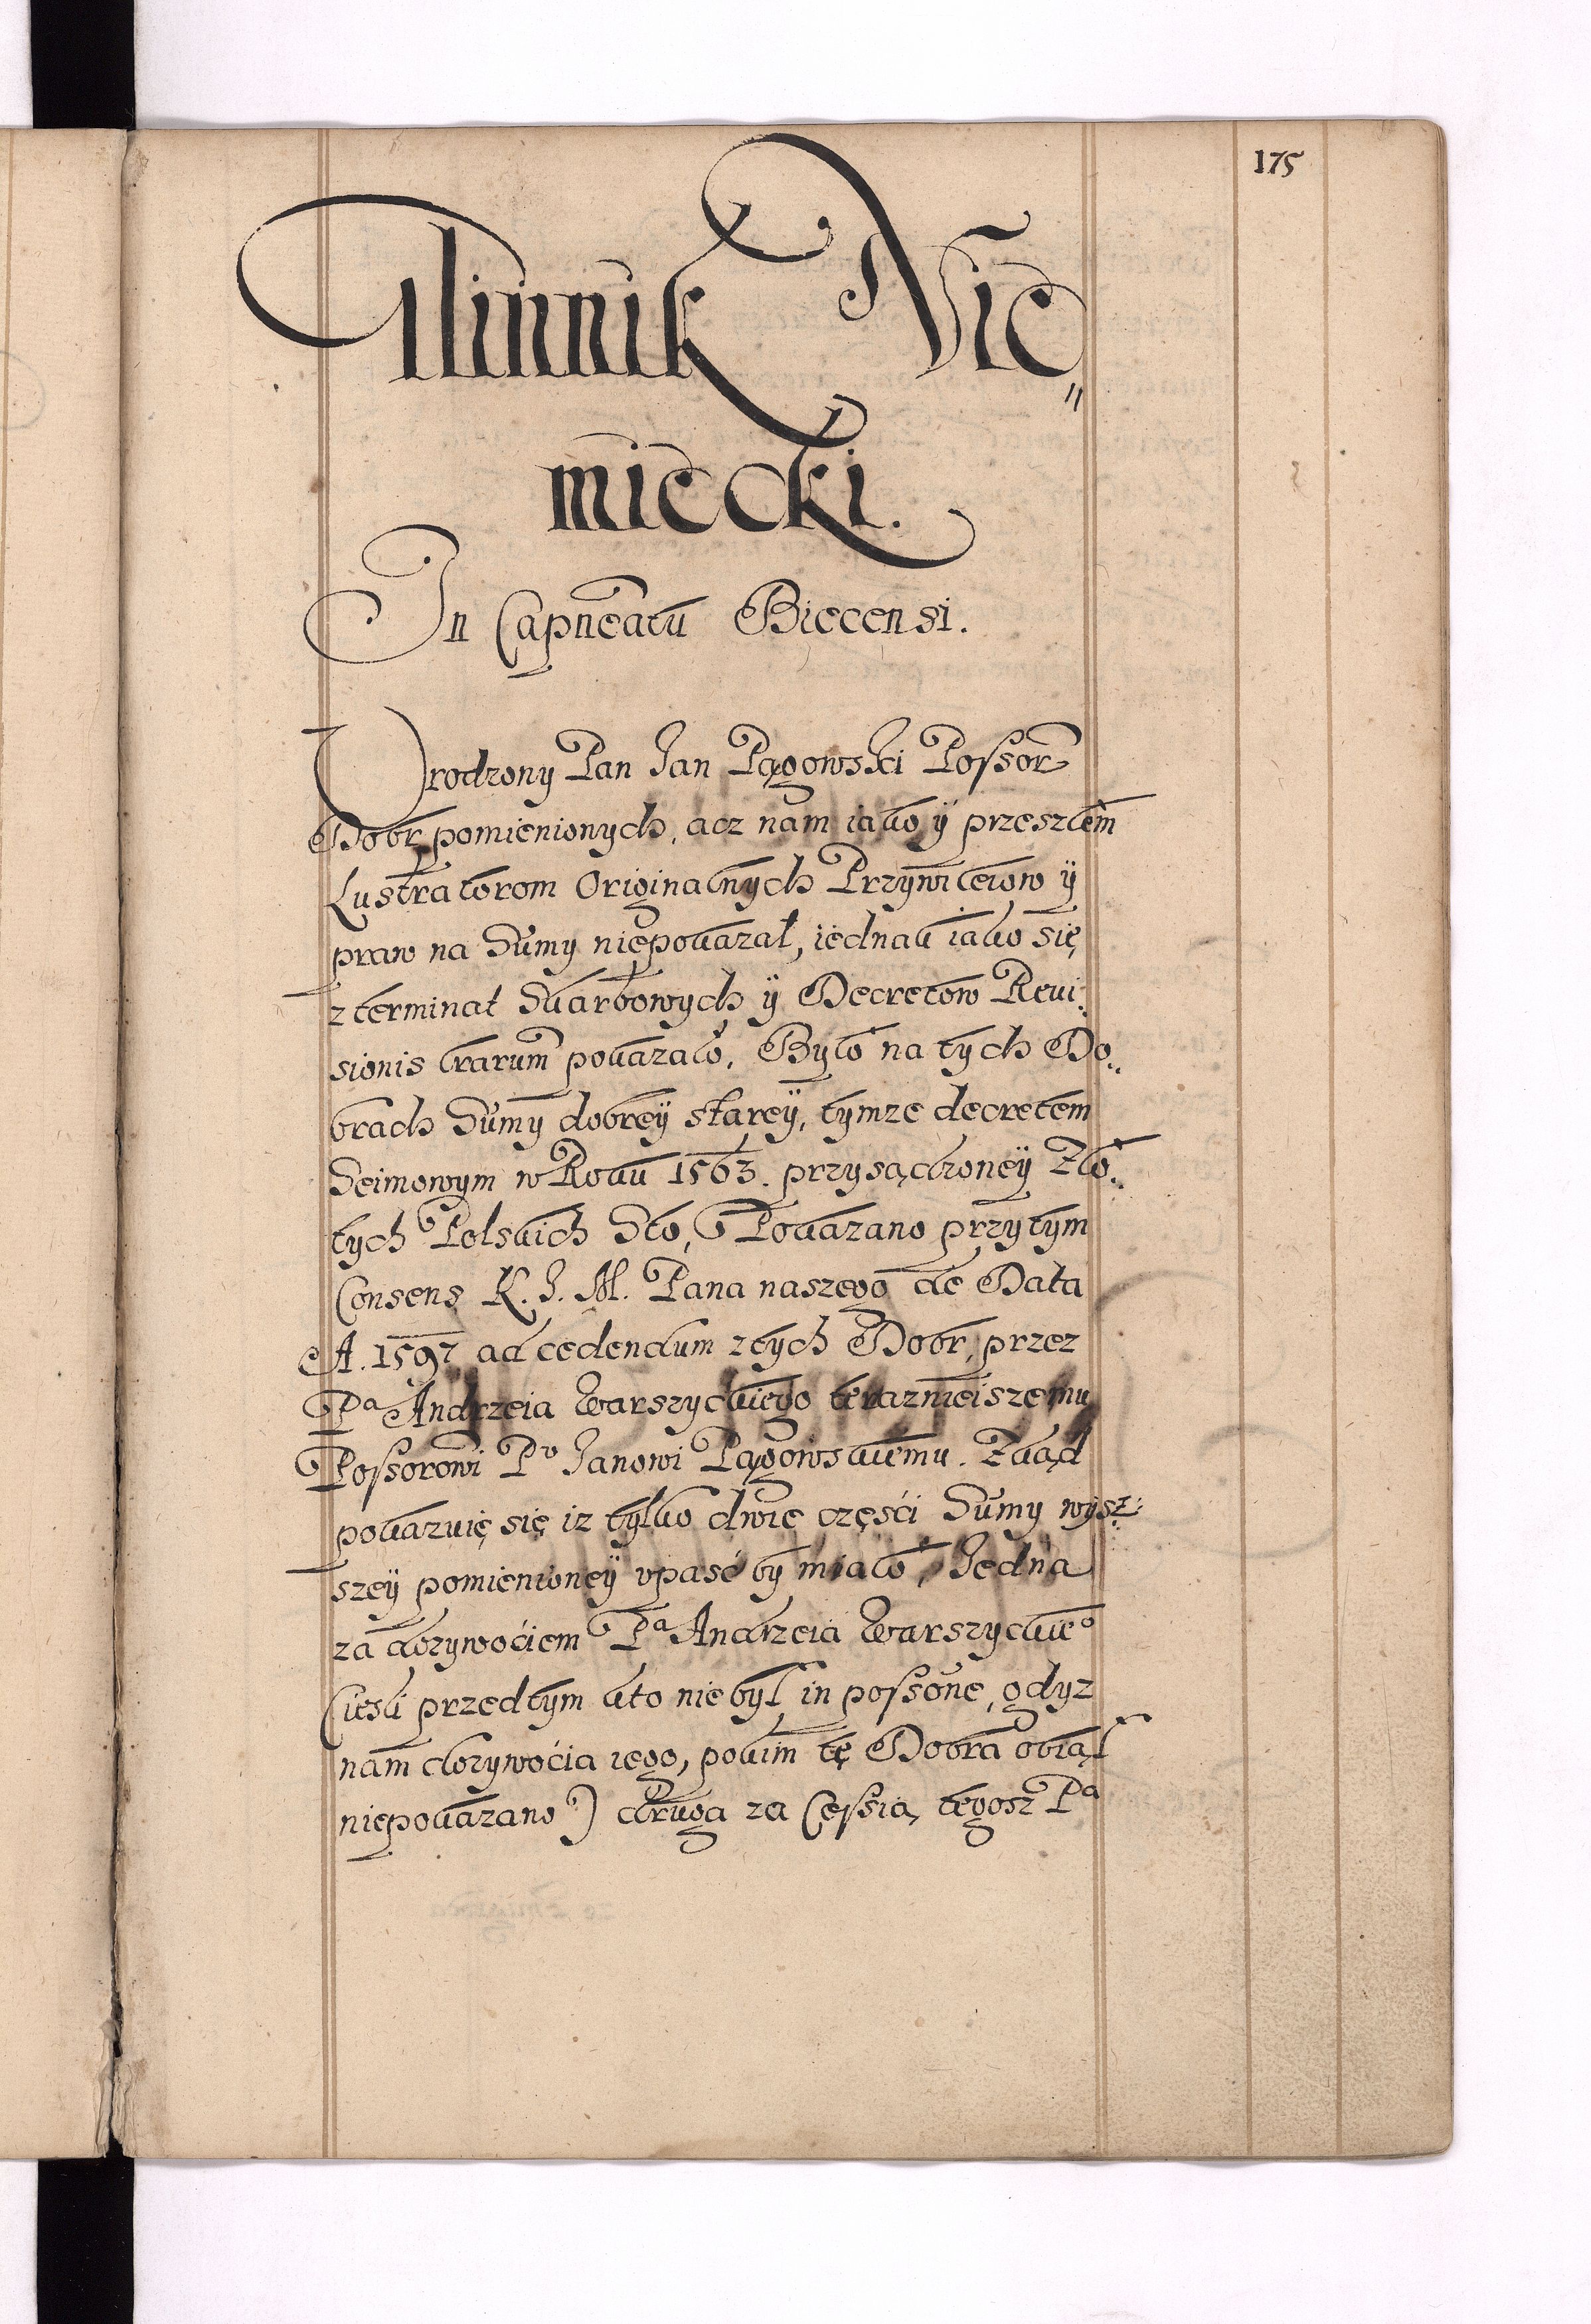 175
Glinnik Nie„
miecki.
In Capneatu Biecensi.
Vrodzony Pan Jan Pągowski Possor
Dobr pomienionych, acz nam iako ÿ przeszłem
Lustratorom Originalnych Przywileiow ÿ
praw na Sumy niepokazał, iednak iako się
z terminat Skarbowych ÿ Decretow Reui:
sionis lrarum pokazało, Było na tych Do:
brach Sumÿ dobreÿ stareÿ, tymze decretem
Seimowym w Roku 1563. przysądzoneÿ Zło:
tych Polskich Sto, Pokazano przy tym
Consens K. J. M. Pana naszego de Data
A. 1597 ad cedendum z tych Dobr, przez
Pa Andrzeia Warszyckiego teraznieiszemu
Possorowi Pu Janowi Pągowskiemu. Zkąd
pokazuię się iz tylko dwie częsci Sumy wysz:
szeÿ pomienioneÿ vpasć by miało, Jedna
za dozywoćiem Pa Andrzeia Warszyckieo
(iesli przedtym kto nie był in possone, gdyz
nam dozywoćia iego, pokim tę Dobra obiął
niepokazano) druga za Cessią tegosz Pa